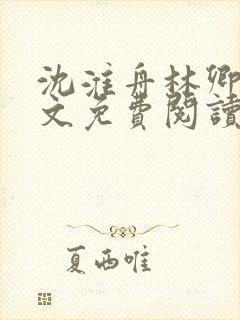 沈淮舟林卿
文免費閱讀
夏西唯